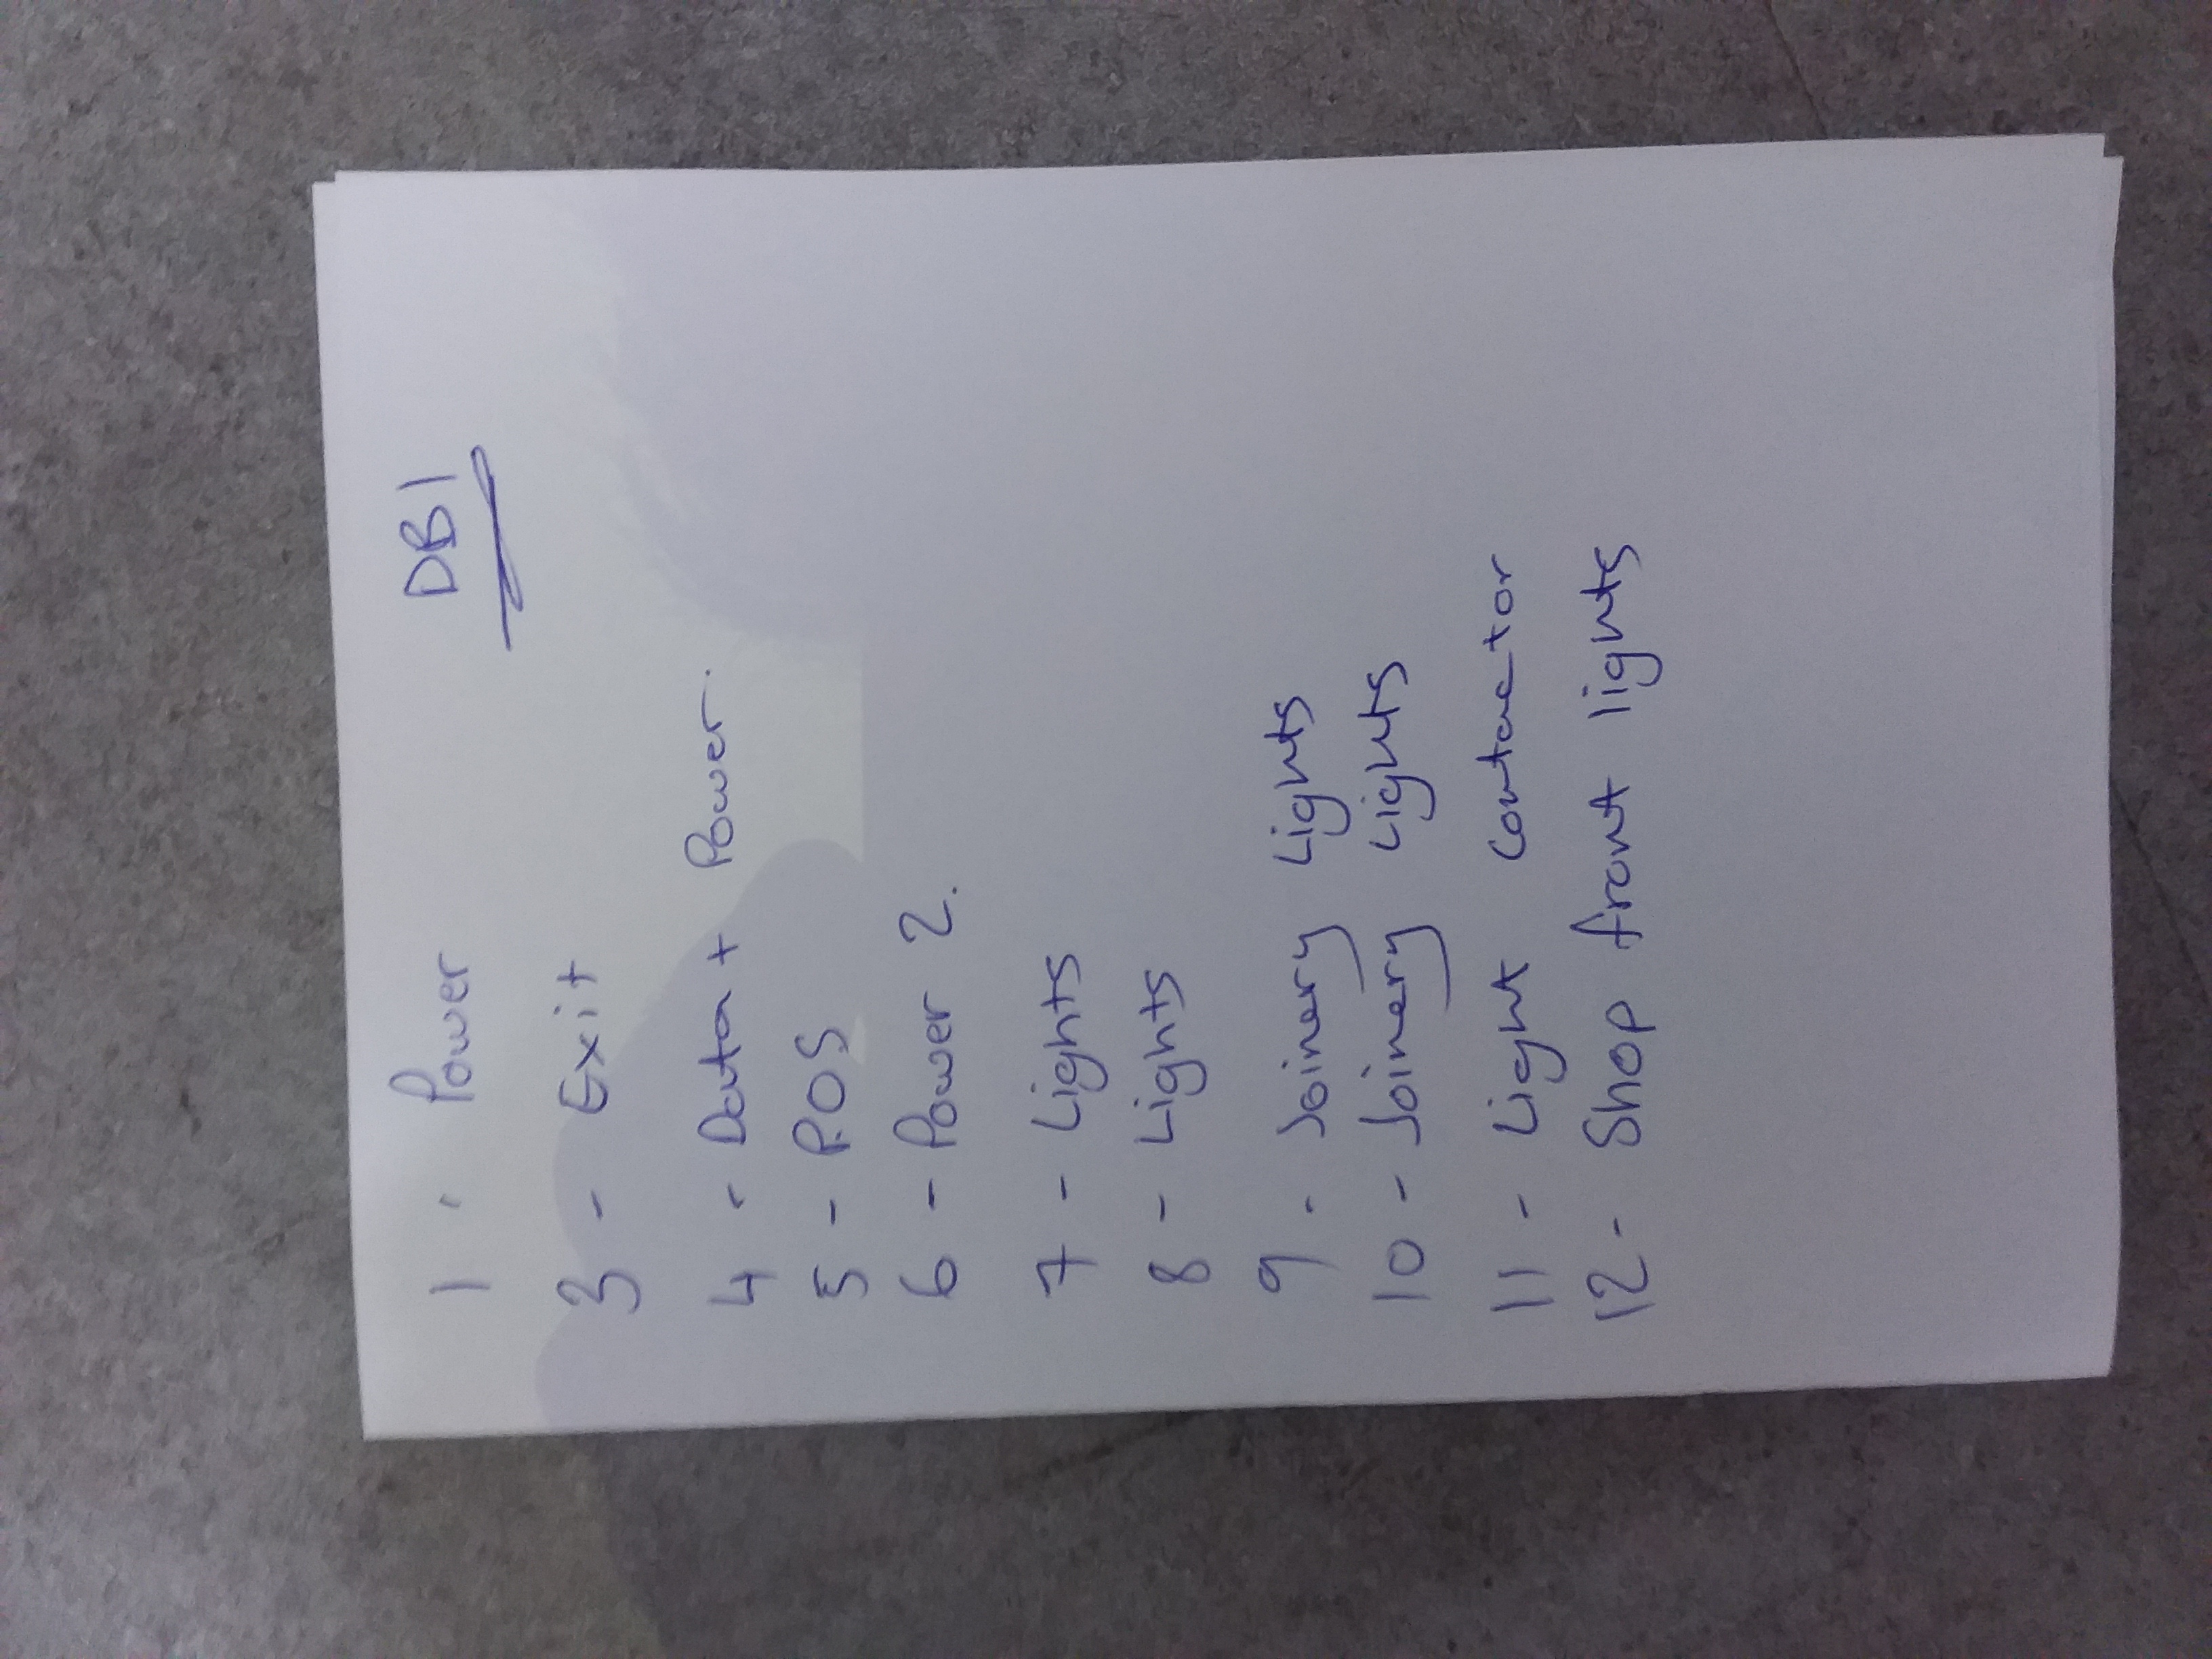 DB1
1 - Power
3 - Exit
4 - Data + Power.
5 - P.O.S
6 - Power 2.
7 - Lights
8 - Lights
9 - Joinery Lights
10 - Joinery Lights
11 - Light contactor
12 - Shop front lights